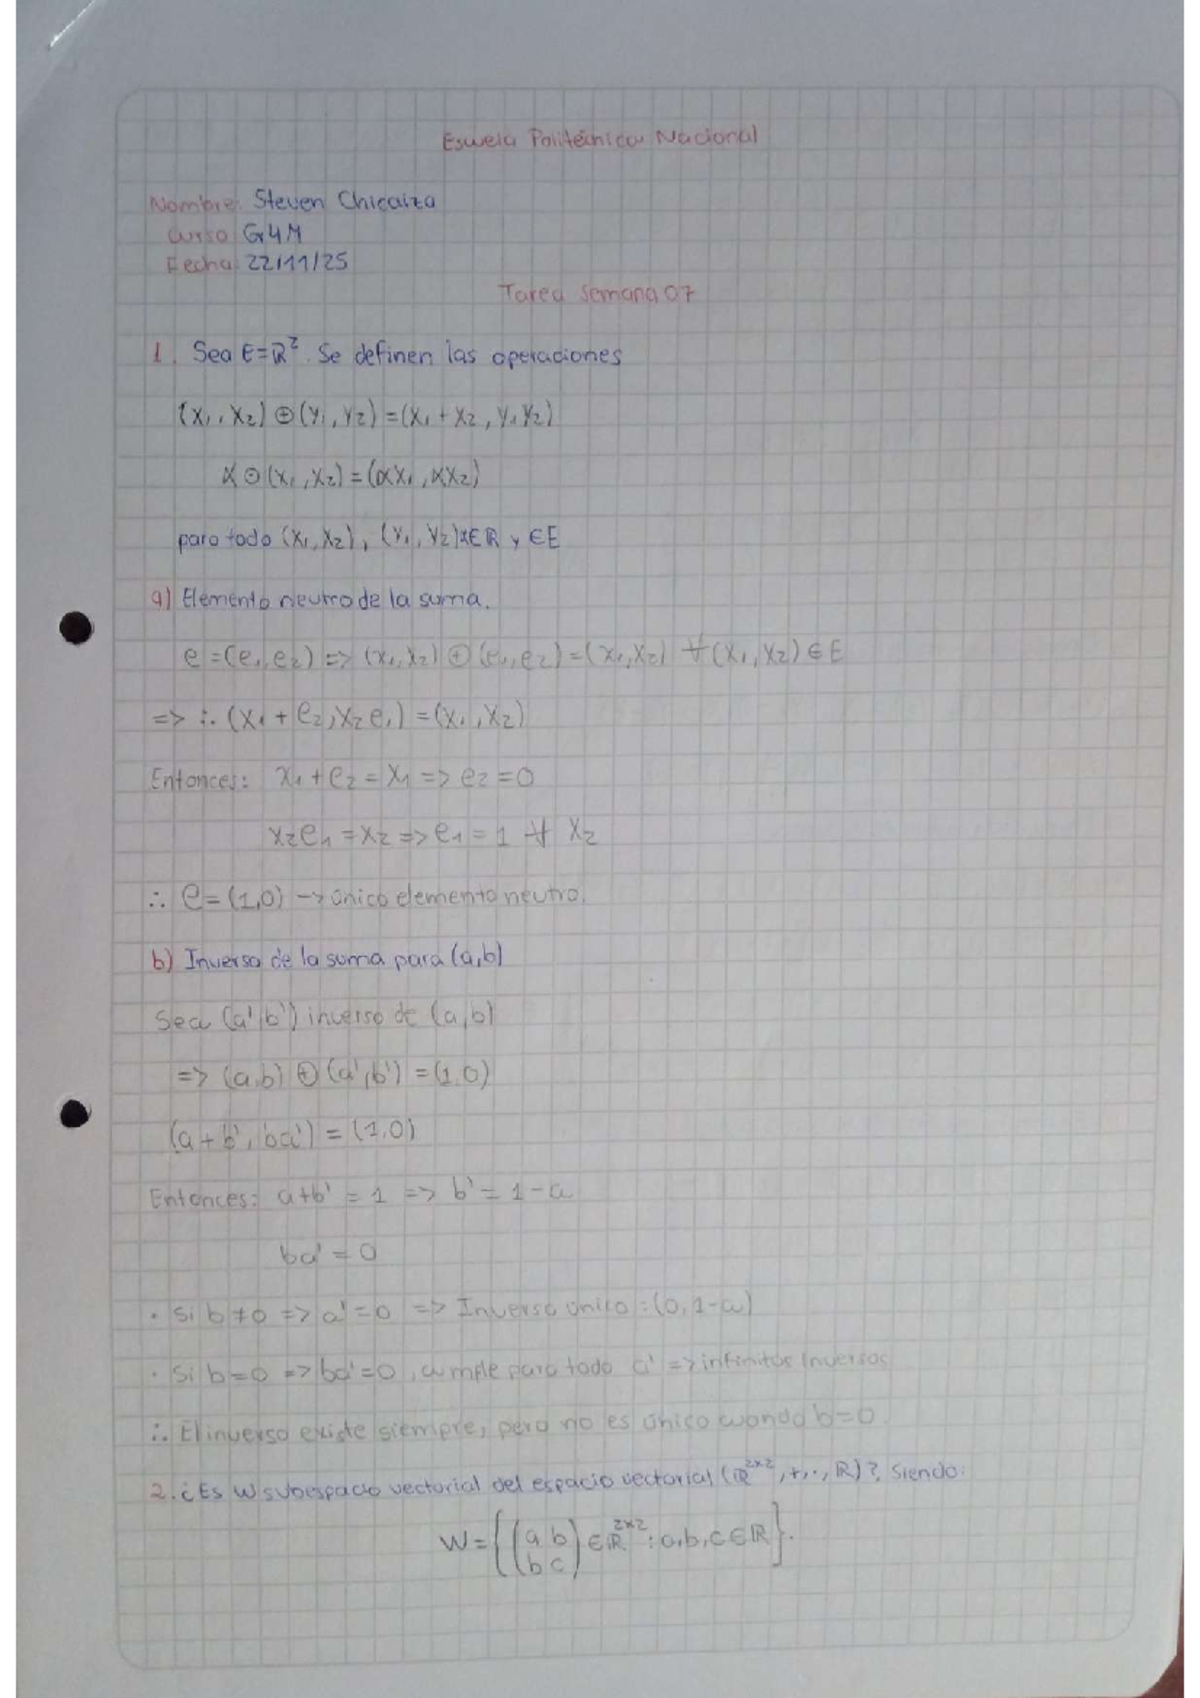 Escuela Politécnica Nacional
Nombre: Steven Chicaiza
Curso: Gr4M
Fecha: 22/11/25
Tarea Semana 07
1. Sea E=ℝ². Se definen las operaciones
(x₁, x₂) ⊕ (y₁, y₂) = (x₁ + x₂, y₁y₂)
α ⊙ (x₁, x₂) = (αx₁, αx₂)
para todo (x₁, x₂), (y₁, y₂) α∈ℝ y ∈E
a) Elemento neutro de la suma.
e = (e₁, e₂) => (x₁, x₂) ⊕ (e₁, e₂) = (x₁, x₂) ∀ (x₁, x₂) ∈ E
=> ∴ (x₁ + e₂, x₂e₁) = (x₁, x₂)
Entonces: x₁ + e₂ = x₁ => e₂ = 0
x₂e₁ = x₂ => e₁ = 1 ∀ x₂
∴ e = (1,0) -> único elemento neutro.
b) Inverso de la suma para (a,b)
Sea (a', b') inverso de (a,b)
=> (a,b) ⊕ (a', b') = (1,0)
(a + b', ba') = (1,0)
Entonces: a+b' = 1 => b' = 1-a
ba' = 0
· Si b≠0 => a'=0 => Inverso único: (0, 1-a)
· Si b=0 => ba'=0, cumple para todo a' => infinitos Inversos
∴ El inverso existe siempre, pero no es único cuando b=0.
2. ¿Es W subespacio vectorial del espacio vectorial (ℝ²ˣ², +, ·, ℝ)?, Siendo:
W = {(a b
b c) ∈ ℝ²ˣ² : a, b, c ∈ ℝ}.